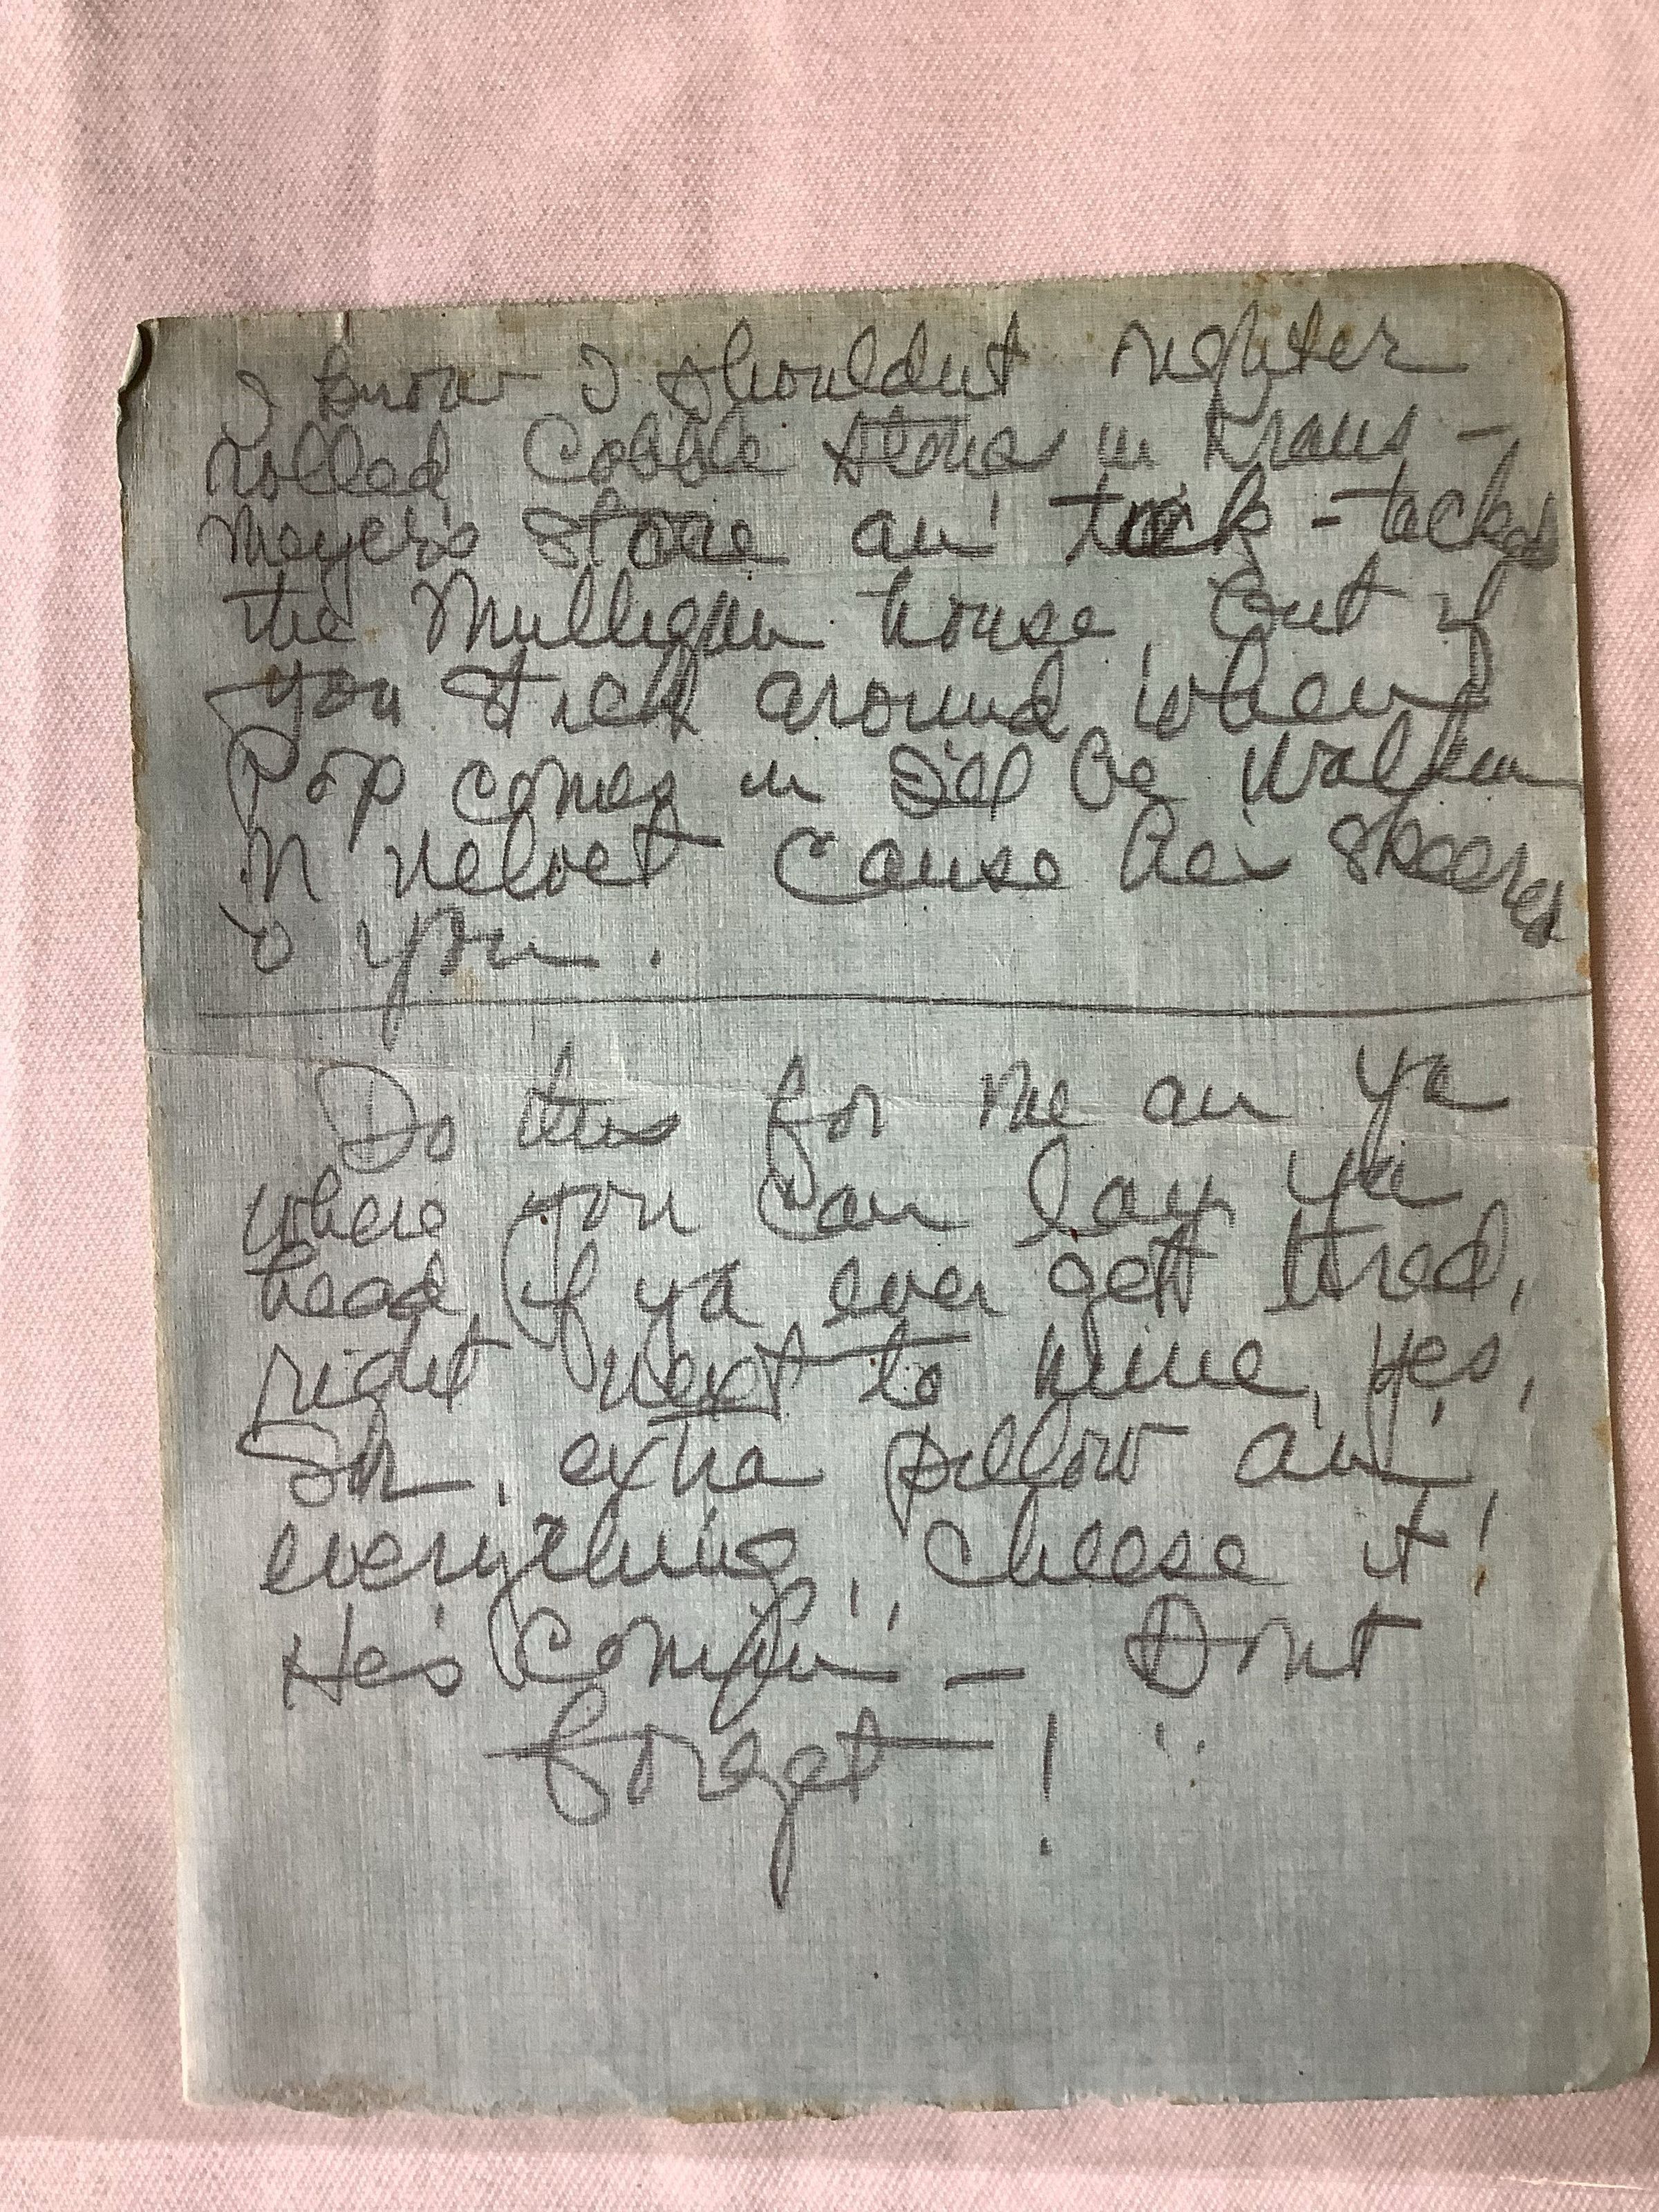 I know I shouldnt
rolled Cobble stones in Kraus -
meyer's store an' tick - tacked
the Mulligan house, but if
you stick around when
Pop comes in I'll be walkin
in velvet cause he's skeered
o you.
Do this for me an ya
where you can lay ya
head, if ya ever gett tired,
right next to mine, yes,
Sir, extra pillow an'
everything, cheese it!
He's Comin' - Dont
forget - !